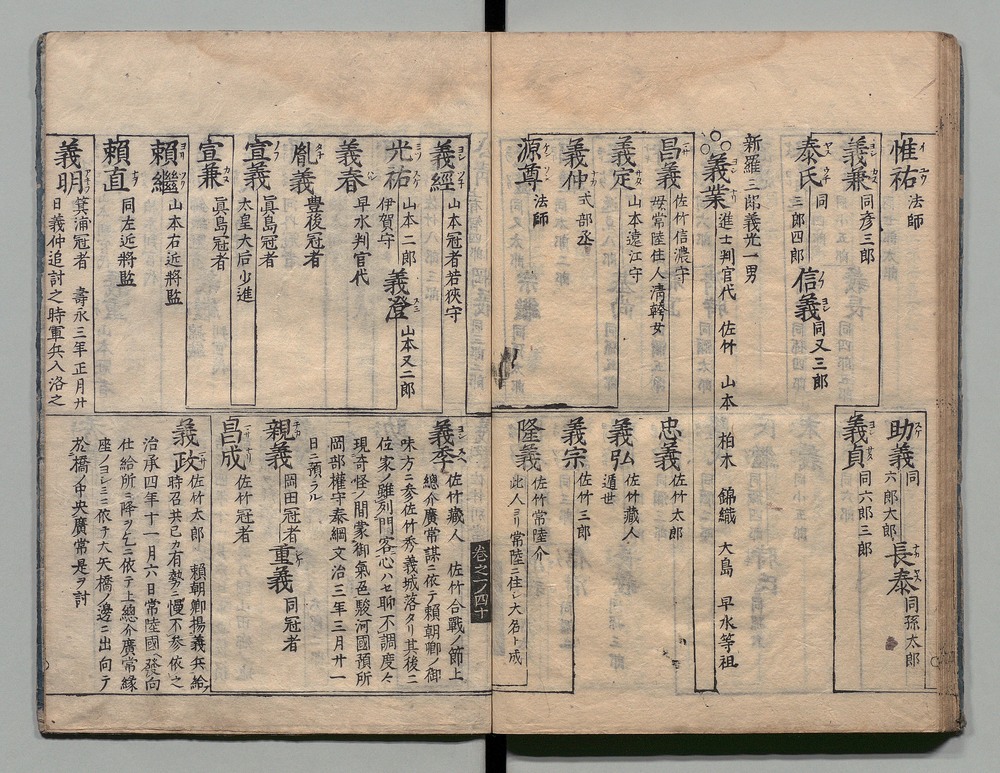 惟祐 法師
義兼 同彦三郎
泰氏 同三郎四郎
信義 同又三郎
助義 同六郎太郎
長泰 同孫太郎
義貞 同六郎三郎
新羅三郎義光一男
義業 進士判官代 佐竹 山本 柏木 錦織 大島 早水等祖
昌義 佐竹信濃守
母常陸住人清幹女
義定 山本遠江守
義仲 式部丞
源尊 法師
忠義 佐竹太郎
義弘 佐竹藏人
遁世
義宗 佐竹三郎
隆義 佐竹常陸介
此人ヨリ常陸ニ住シ大名ト成
卷之一ノ四十
義經 山本冠者若狹守
光祐 山本二郎
伊賀守
義澄 山本又二郎
義春 早水判官代
胤義 豊後冠者
宣義 眞島冠者
太皇大后少進
宣兼 眞島冠者
賴繼 山本右近將監
賴直 同左近將監
義明 箕浦冠者 壽永三年正月廿
日義仲追討之時軍兵入洛之
義季 佐竹藏人 佐竹合戰ノ節上
總介廣常謀ニ依テ賴朝卿ノ御
味方ニ參佐竹秀義城落タリ其後ニ
佐家ノ雖列門客心ハセ聊不調度々
現奇怪ノ間蒙御氣色駿河國預所
岡部權守泰綱文治三年三月廿一
日ニ預ラル
親義 岡田冠者
重義 同冠者
昌成 佐竹冠者
義政 佐竹太郎 賴朝卿揚義兵給
時召共己カ有勢ニ慢不參依之
治承四年十一月六日常陸國ヘ發向
仕給所ニ降ヲ乞ニ依テ上總介廣常縁
座ノヨシミニ依テ大矢橋ノ邊ニ出向テ
於橋ノ中央廣常是ヲ討